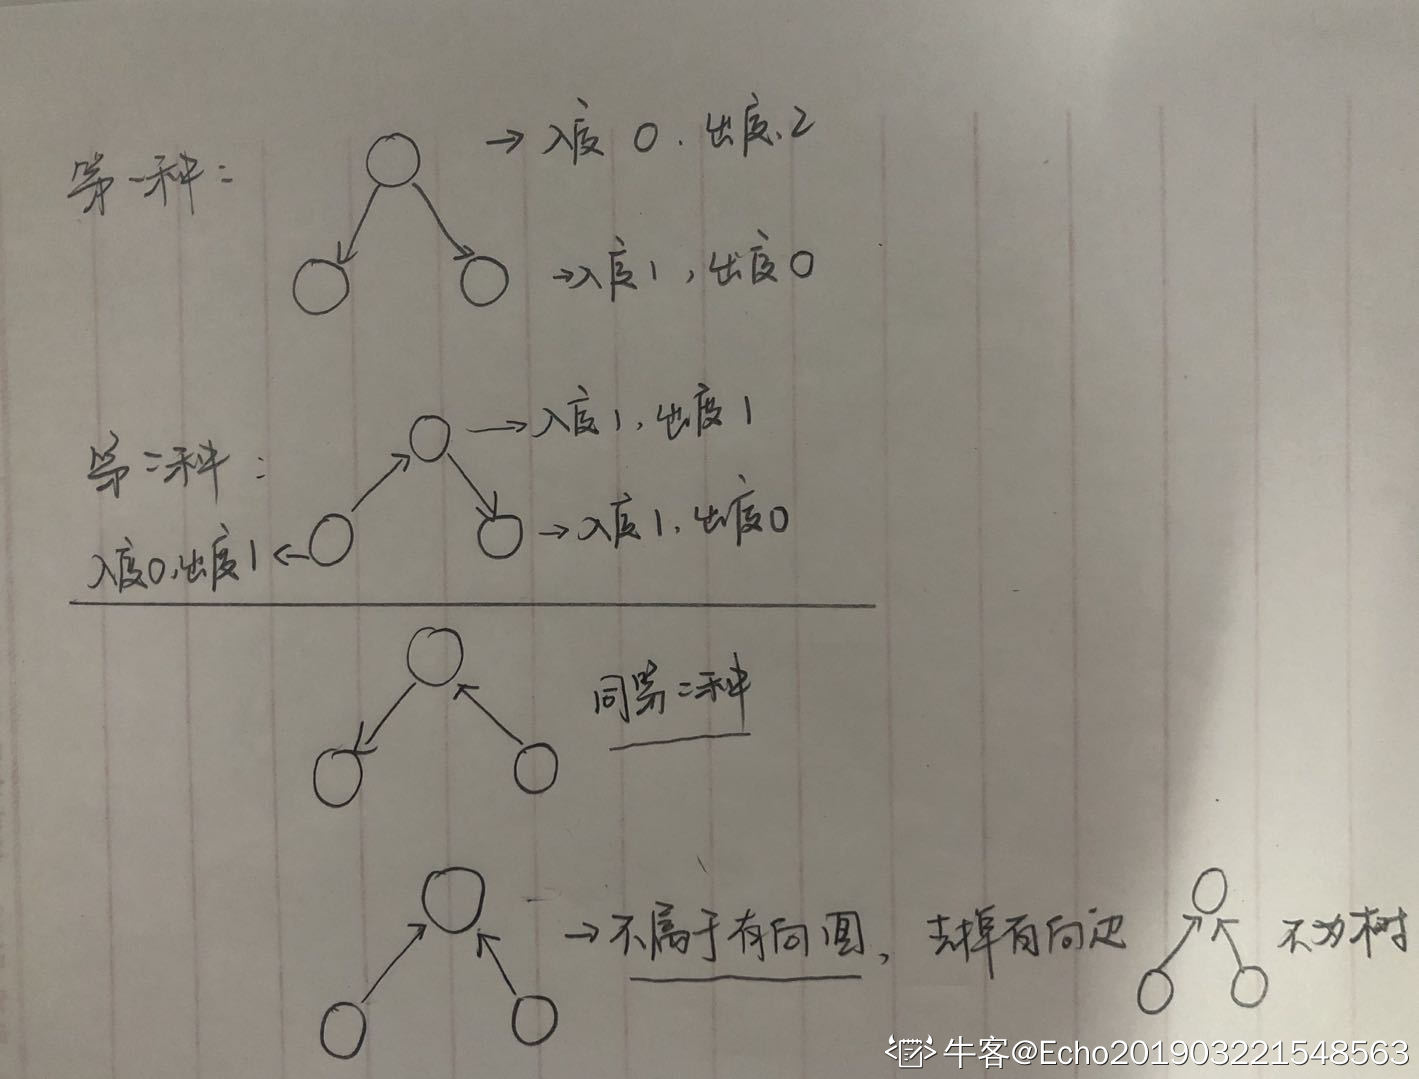 第一种: → 入度 0. 出度.2
→入度1,出度0
第二种: →入度1,出度1
→入度1,出度0
入度0,出度1←
同第二种
→不属于有向图,去掉有向边 不为树
牛客@Echo201903221548563